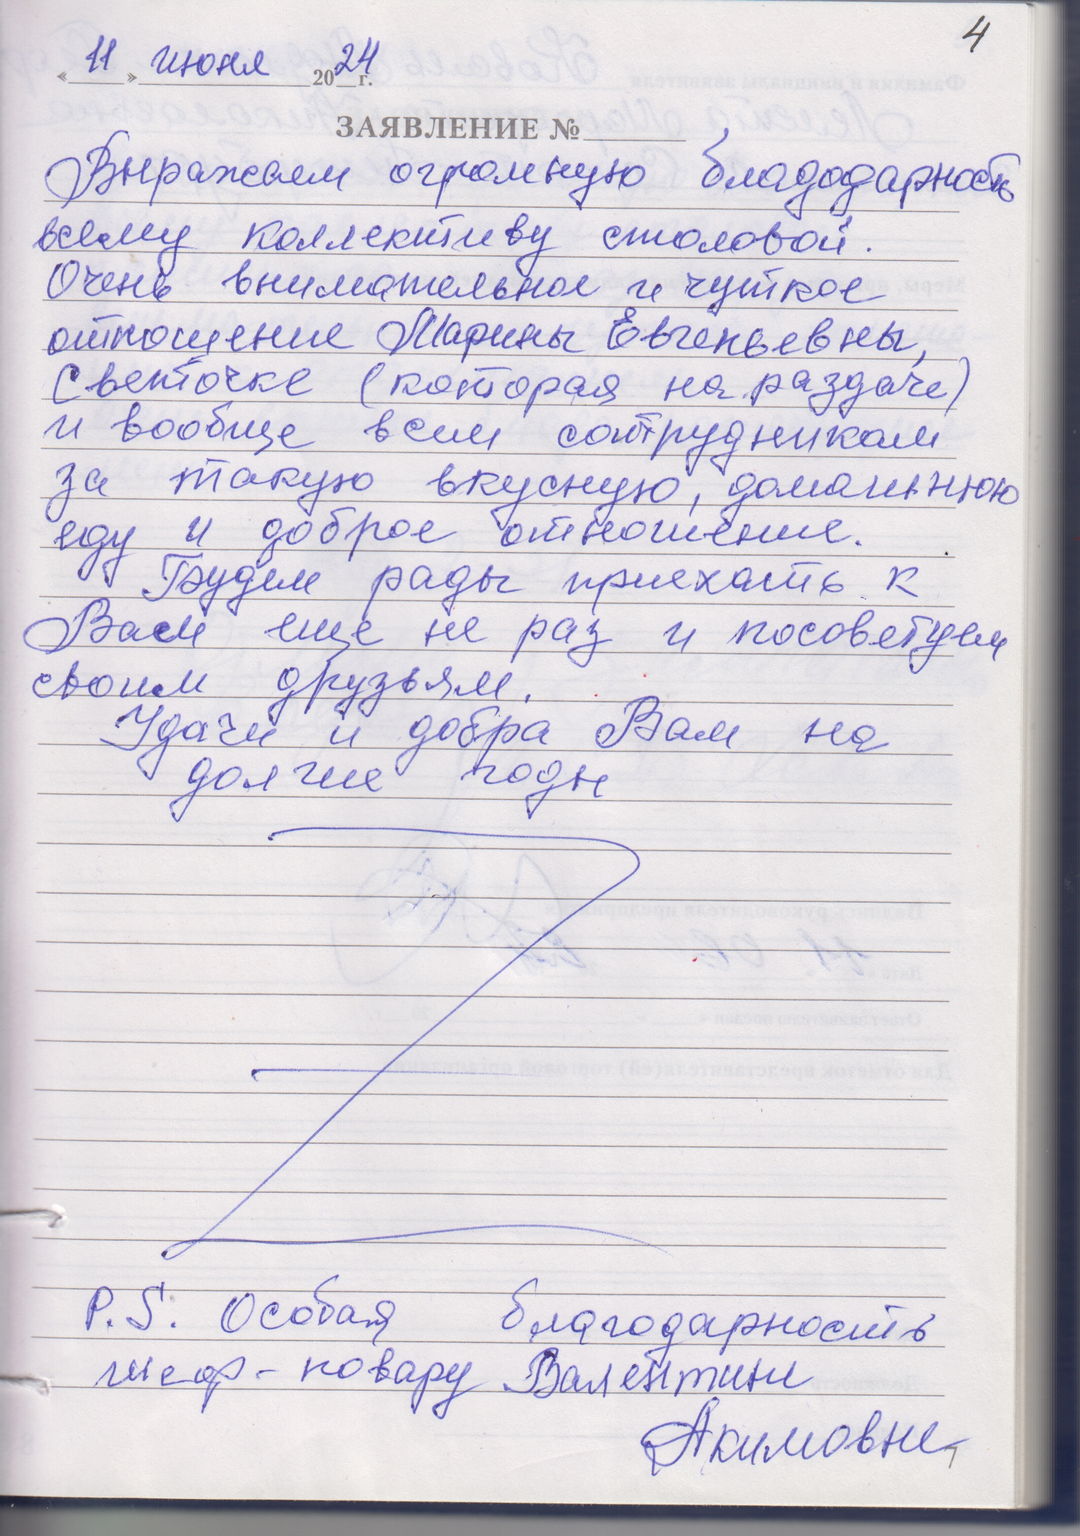 4
«11» июня 2024 г.
ЗАЯВЛЕНИЕ №
Выражаем огромную благодарность
всему коллективу столовой.
Очень внимательное и чуткое
отношение Марины Евгеньевны,
Светочке (которая на раздаче)
и вообще всем сотрудникам
за такую вкусную, домашнюю
еду и доброе отношение.
Будем рады приехать к
Вам еще не раз и посоветуем
своим друзьям.
Удачи и добра Вам на
долгие годы
P.S. Особая благодарность
шеф-повару Валентине
Акимовне